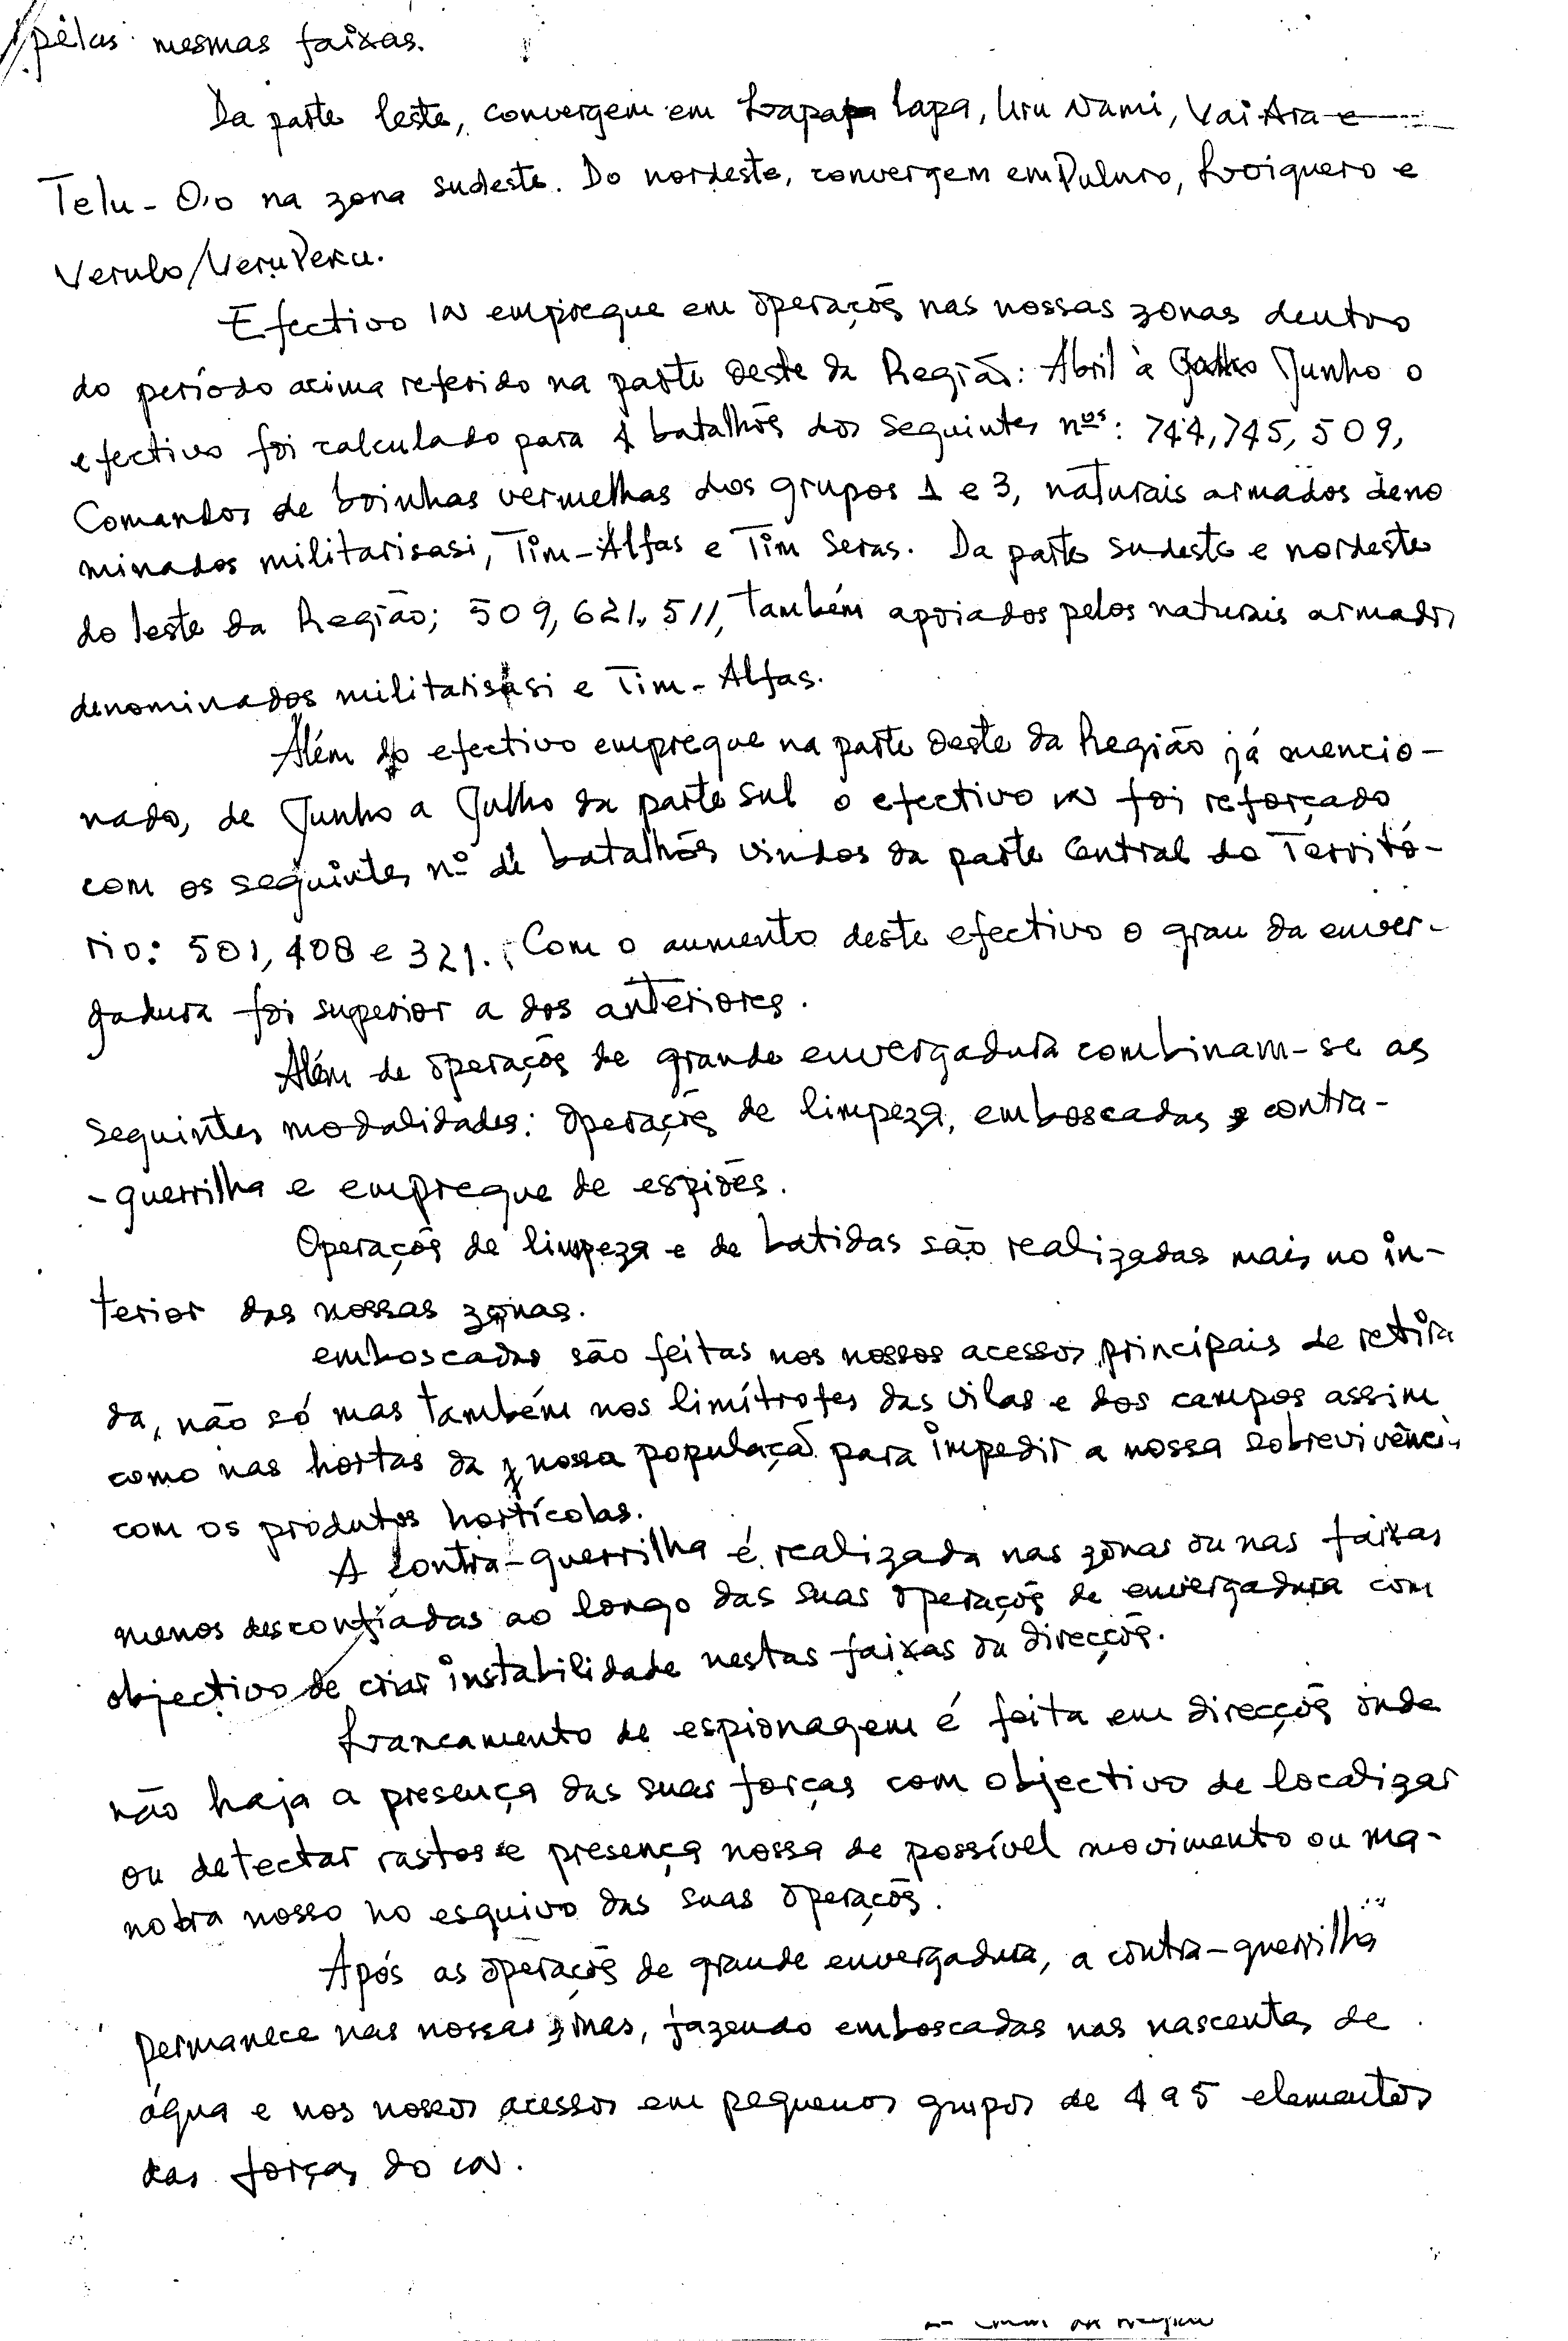 pelas mesmas faixas.
Da parte leste, convergem em Lapa, Uru Nami, Vai Ara e
Telu-Oo na zona sudeste. Do nordeste, convergem em Puluro, Loiquero e
Verulo/VeruPeku.
Efectivo IN empregue em operaçõs nas nossas zonas dentro
do período acima referido na parte oeste da Região: Abril à Junho o
efectivo foi calculado para 4 batalhõs dos seguintes nºs: 744, 745, 509,
Comandos de boinhas vermelhas dos grupos 1 e 3, naturais armados deno
minados militarisasi, Tim-Alfas e Tim Seras. Da parte sudeste e nordeste
do leste da Região; 509, 621, 511, também apoiados pelos naturais armados
denominados militarisasi e Tim-Alfas.
Além do efectivo empregue na parte oeste da Região já mencio-
nado, de Junho a Julho da parte sul o efectivo IN foi reforçado
com os seguintes nº de batalhõs vindos da parte central do Territó-
rio: 501, 408 e 321. Com o aumento deste efectivo o grau da enver-
gadura foi superior a dos anteriores.
Além de operaçõs de grande envergadura combinam-se as
seguintes modalidades: operaçõs de limpeza, emboscadas, contra-
-guerrilha e empregue de espiões.
Operaçõs de limpeza e de batidas são realizadas mais no in-
terior das nossas zonas.
emboscadas são feitas nos nossos acessos principais de retira
da, não só mas também nos limítrofes das vilas e dos campos assim
como nas hortas da nossa população para impedir a nossa sobrevivência
com os produtos hortícolas.
A contra-guerrilha é realizada nas zonas ou nas faixas
menos desconfiadas ao longo das suas operaçõs de envergadura com
objectivo de criar instabilidade nestas faixas ou direcçõs.
Lrancamento de espionagem é feita em direcçõs onde
não haja a presença das suas forças com objectivo de localizar
ou detectar rastos e presença nossa de possível movimento ou ma-
nobra nosso no esquivo das suas operaçõs.
Após as operaçõs de grande envergadura, a contra-guerrilha
permanece nas nossas zonas, fazendo emboscadas nas nascentes de
água e nos nossos acessos em pequenos grupos de 4 a 5 elementos
das forças do IN.